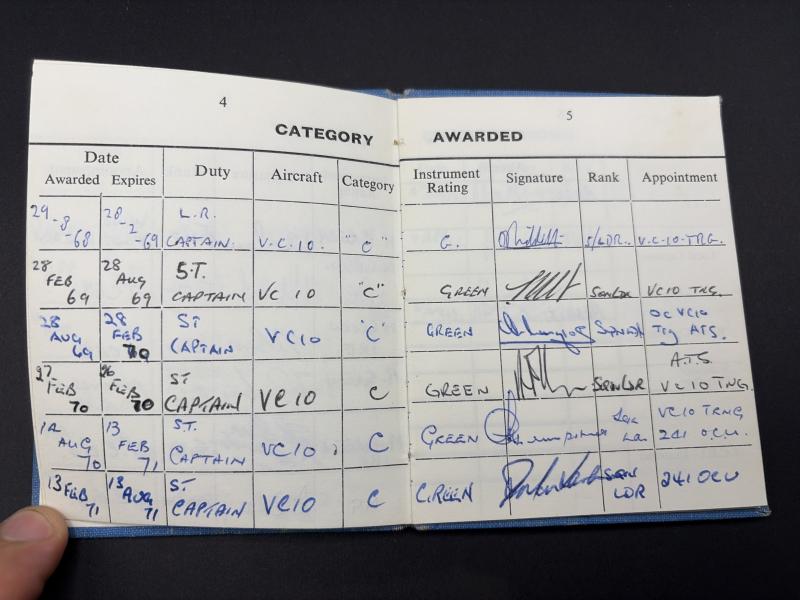 4
5
CATEGORY AWARDED
Date
Awarded Expires Duty Aircraft Category Instrument Rating Signature Rank Appointment
29-8-68 28-2-69 L.R. CAPTAIN. V.C.10. "C" G. S/LDR.. V.C-10-TRG.
28 FEB 69 28 AUG 69 S.T. CAPTAIN VC 10 "C" GREEN SQNLDR VC10 TNG.
28 AUG 69 28 FEB 70 ST CAPTAIN VC10 "C" GREEN OC VC10 Trg ATS.
27 FEB 70 26 FEB 70 ST CAPTAIN VC10 C GREEN SQNLDR A.T.S. VC10 TNG.
AUG 70 13 FEB 71 S.T. CAPTAIN VC10 C GREEN VC10 TRNG 241 O.C.U.
13 FEB 71 13 AUG 71 ST CAPTAIN VC10 C GREEN SQN LDR 241 OCU